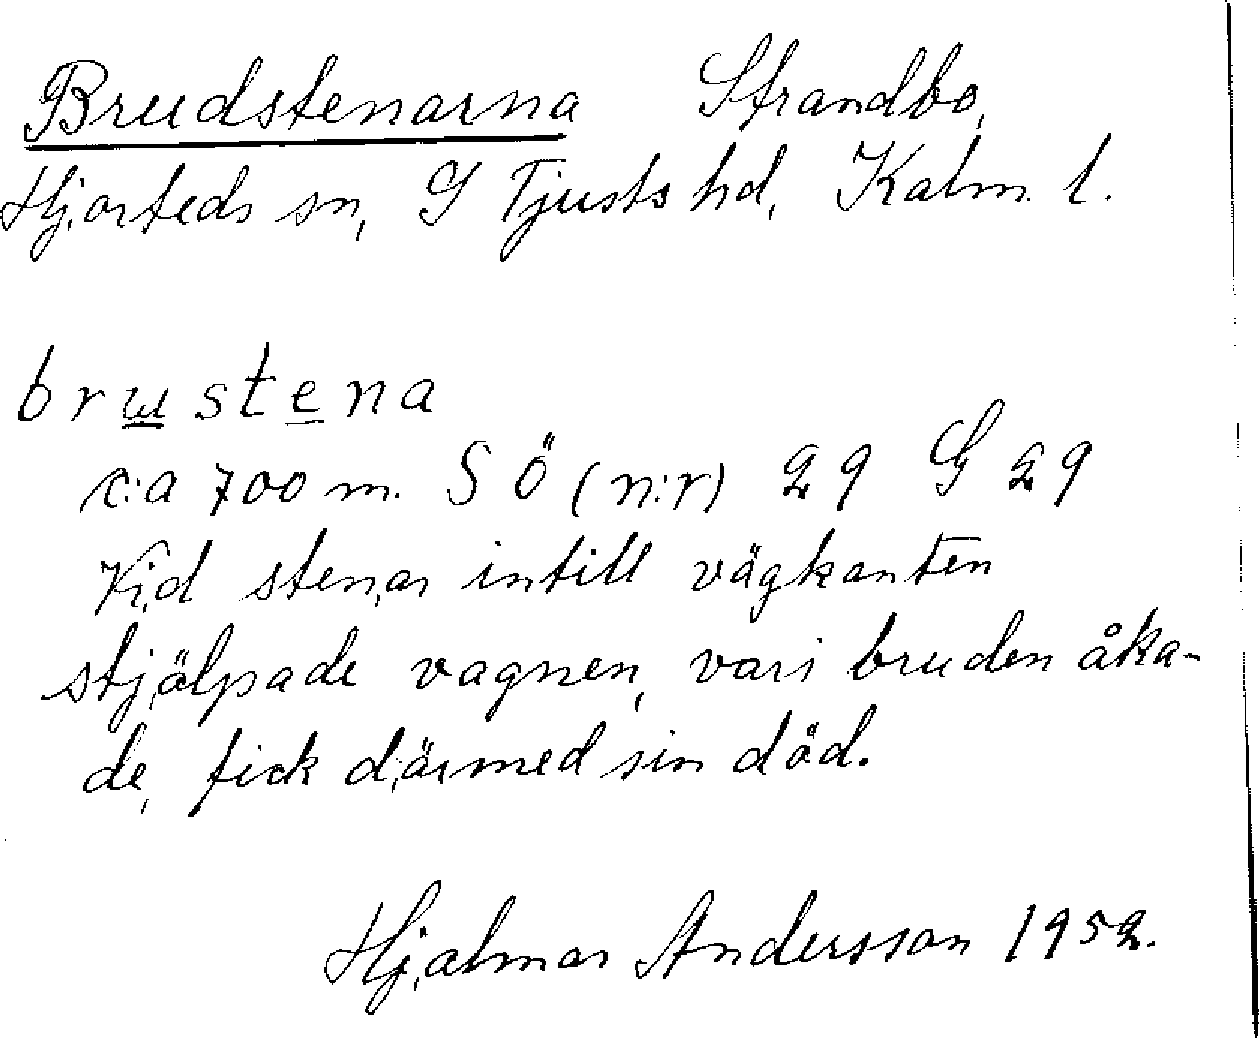 Brudstenarna Strandbo,
Hjorteds sn, S Tjusts hd, Kalm. l.
brustena
c:a 700 m. S Ö (n:r) 29 G 29
Vid stenar intill vägkanten
stjälpade vagnen, vari bruden åka-
de, fick därmed sin död.
Hjalmar Andersson 1952.